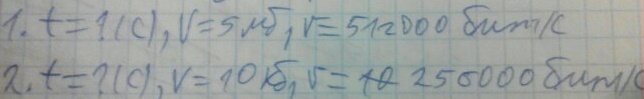 1. t=?(с), V=5мб, v=512000 бит/с
2. t=?(с), V=10кб, v=256000 бит/с